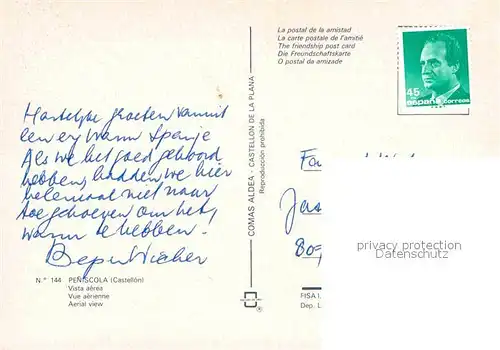 La postal de la amistad
La carte postale de l'amitié
The friendship post card
Die Freundschaftskarte
O postal da amizade
45
españa correos
Hartelijke groeten vanuit
een erg warm Spanje
Als we het goed gehoord
hebben, hadden we hier
helemaal niet naar
toe gehoeven om het
warm te hebben.
COMAS ALDEA - CASTELLON DE LA PLANA
Reproducción prohibida
Fa
Jas
80
privacy protection
Datenschutz
N.º 144 PEÑISCOLA (Castellón)
Vista aérea
Vue aérienne
Aerial view
FISA I.
Dep. L.
®